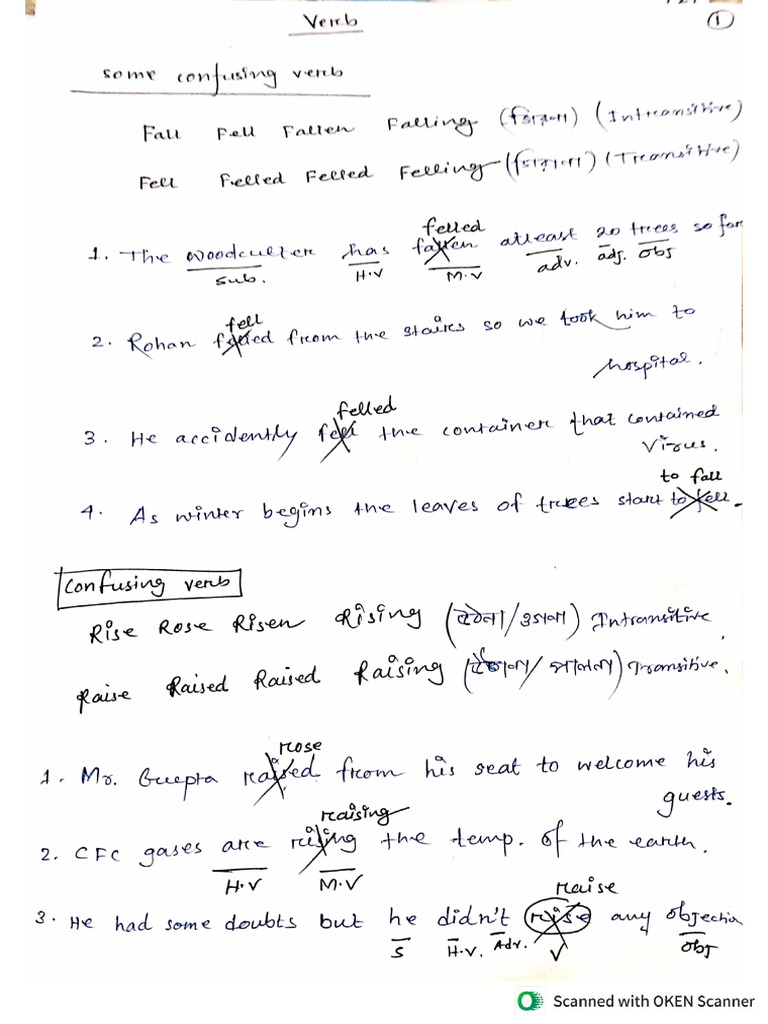 Verb
1
some confusing verb
Fall Fell Fallen Falling (Intransitive)
Fell Felled Felled Felling (Transitive)
felled
1. The woodcutter has fallen atleast 20 trees so far
sub. H.V M.V adv. adj. obj
fell
2. Rohan felled from the stairs so we took him to
hospital.
felled
3. He accidently fell the container that contained
virus.
to fall
4. As winter begins the leaves of trees start to fell.
Confusing verb
Rise Rose Risen Rising Intransitive
Raise Raised Raised Raising Transitive.
rose
1. Mr. Gupta raised from his seat to welcome his
guests.
raising
2. CFC gases are rising the temp. of the earth.
H.V M.V
raise
3. He had some doubts but he didn't rise any objection
S H.V. Adv. V obj
Scanned with OKEN Scanner